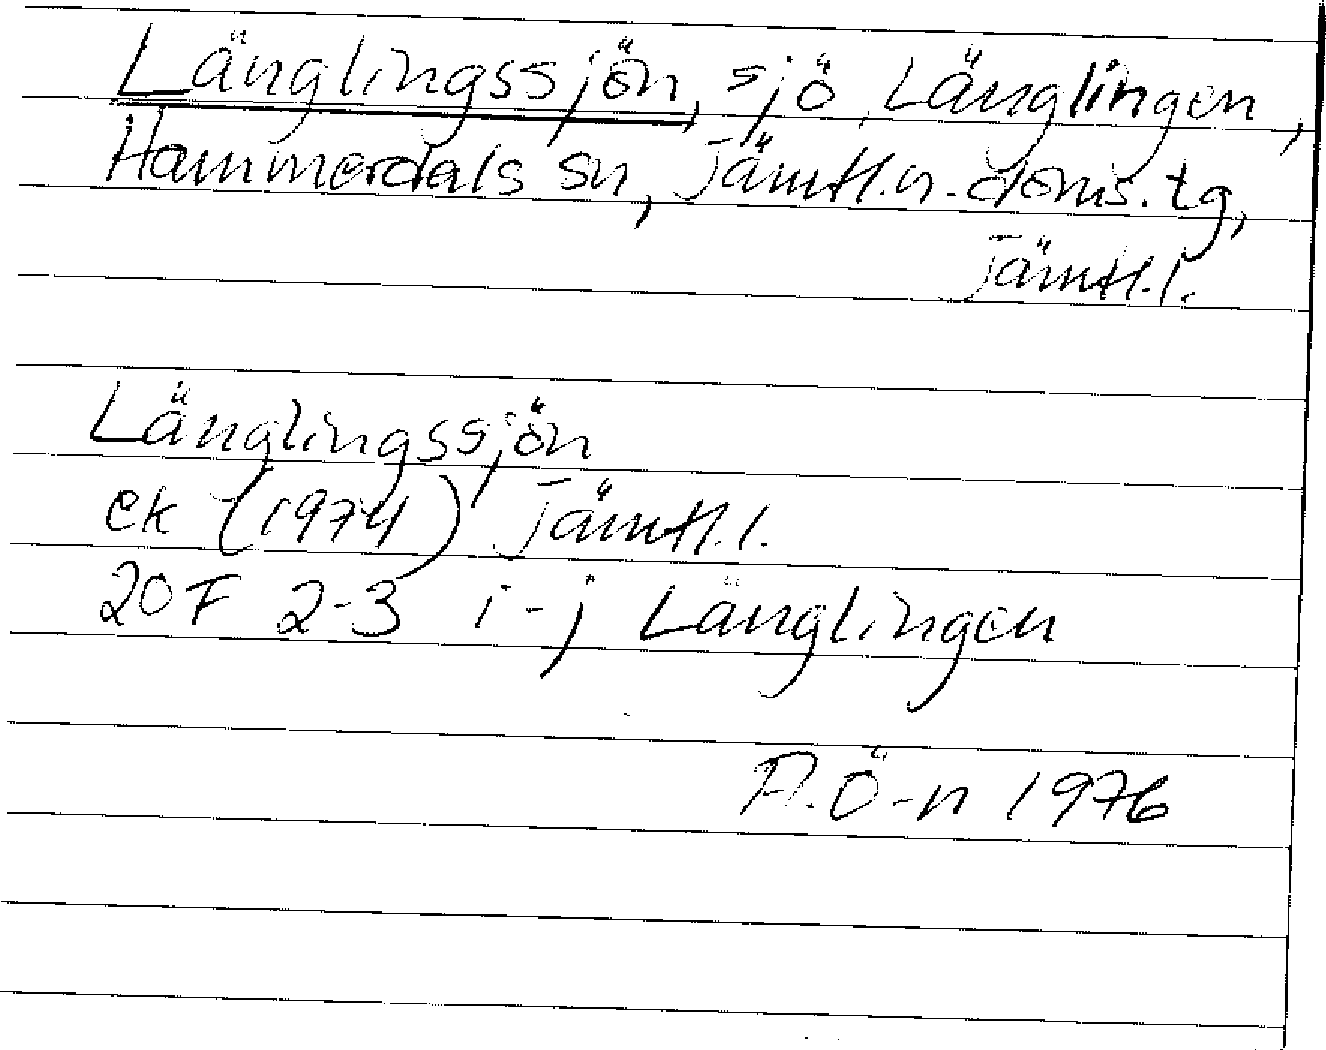 Länglingssjön, sjö, Länglingen,
Hammerdals sn, Jämtl.n.doms.tg,
Jämtl.l.
Länglingssjön
ek (1974) Jämtl.l.
20F 2-3 i-j Länglingen
A.Ö-n 1976